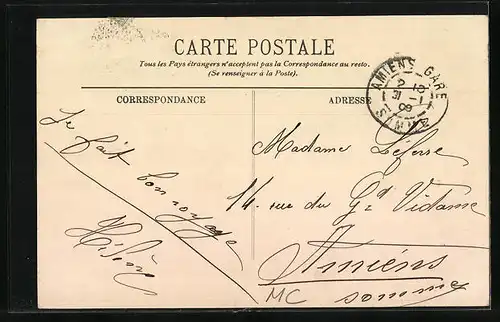 CARTE POSTALE
Tous les Pays étrangers n'acceptent pas la Correspondance au recto.
(Se renseigner à la Poste).
CORRESPONDANCE
ADRESSE
AMIENS-GARE
31-1
09
SOMME
fait bon voyage
Madame Lefevre
14. rue du Gd Vidame
Amiens
Somme
MC